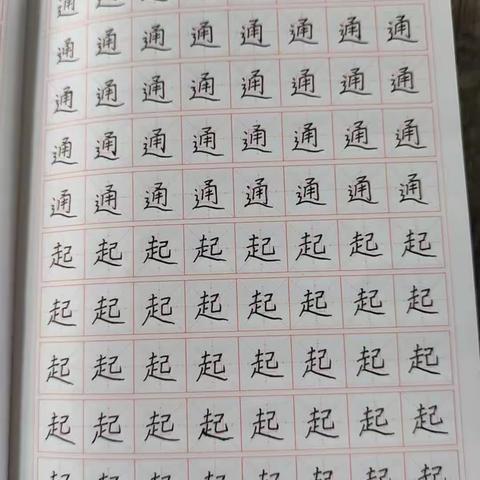 通 通 通
通 通 通 通 通 通 通 通
通 通 通 通 通 通 通 通
通 通 通 通 通 通 通 通
通 通 通 通 通 通 通 通
起 起 起 起 起 起 起 起
起 起 起 起 起 起 起 起
起 起 起 起 起 起 起 起
起 起 起 起 起 起 起 起
起 起 起 起 起 起 起 起